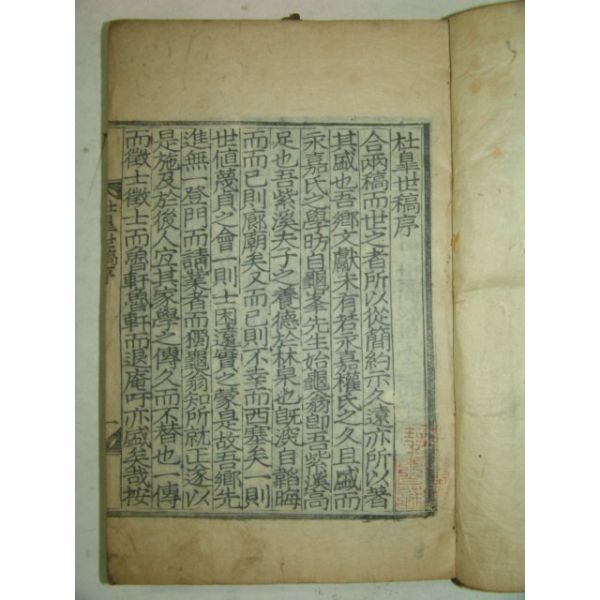 杜皐世稿序
合兩稿而世之者所以從簡約示久遠亦所以著
其盛也吾鄕文獻未有若永嘉權氏之久且盛而
永嘉氏之學昉自龜峯先生始龜翁卽吾紫溪高
足也吾紫溪夫子之養德於林泉也旣深自韜晦
而而已則廊廟矣又而已則不幸而西塞矣一則
世値蔑貞之會一則士困遠實之蒙是故吾鄕先
進無一登門而請業者而獨龜翁知所就正遂以
是施及於後人宜其家學之傳久而不替也一傳
而徵士徵士而魯軒魯軒而退庵吁亦盛矣哉按
杜皐世稿序
一